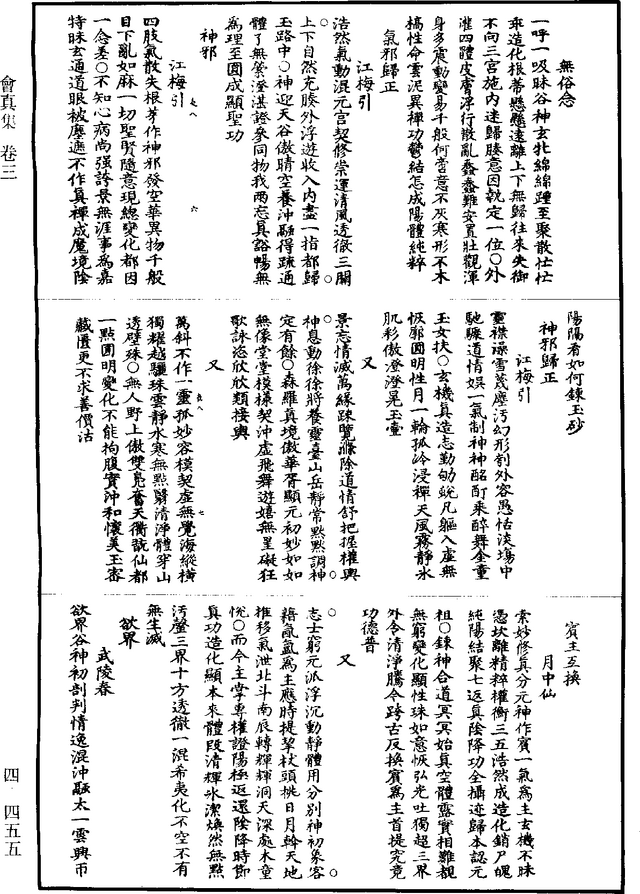 無俗念
一呼一吸昧谷神玄牝綿綿踵至聚散忙忙
乖造化根蒂懸懸遠離上下無歸往來失御
不向三宮施內迷歸腠意因執定一位○外
灌四體皮膚浮行散亂蠢蠢難安置壯觀渾
身多震動變易千般何當意不灰寒形不木
槁性命雲泥異禪功鬱結怎成陽體純粹
氣邪歸正
江梅引
浩然氣動混元宮契修崇運清風透徹三關
上下自然充腠外浮遊收入內盡一指都歸
玉路中○神迎天谷傲晴空養沖融得疏通
體了無縈瀅湛證參同物我兩忘真谿暢無
為理至圓成顯聖功
神邪
江梅引
四肢氣散失根芽作神邪發空華異物千般
目下亂如麻一切聖賢隨意現總變化都因
一念差○不知心病尚强誇景無涯事為嘉
特昧玄通道眼被塵遮不作真禪成魔境陰
陽隔若如何鍊玉砂
神邪歸正
江梅引
靈襟澡雪蔑塵污幻形刳外容愚怙淡場中
馳驟道情娛一氣制神神酩酊乘醉舞金童
玉女扶○玄機真造志勤劬蛻凡軀入虛無
恢廓圓明性月一輪孤岭浸禪天風霧靜氷
肌彩傲澄澄晃玉壺
又
景忘情滅萬緣踈覽滌除道情舒把握權輿
神息動徐徐將養靈臺山岳靜常黙黙調神
定有餘○森羅真境傲華胥顯元初妙如如
無像堂堂模樣契沖虛飛舞遊嬉無罣礙狂
歌詠恣欣欣類接輿
又
萬斜不作一靈孤妙容模契虛無覺海縱橫
獨耀越驪珠雲靜水寒無點翳清淨體穿山
透壁珠○無人野上傲雙鳧奮天衢翫仙都
一點圓明變化不能拘腹實沖和懷美玉密
藏匱更不求善價沽
賓主互換
月中仙
索妙修真分元神作賓一氣為主玄機不昧
憑坎離精粹權衡三五浩然成造化銷尸魄
純陽結聚七返真陰降功全攝迹歸本認元
祖○鍊神合道冥冥始真空體露實相難覩
無窮變化顯性珠如意恢弘光吐獨超三界
外令清淨騰今跨古反換賓為主首提究竟
功德普
又
志士窮元派浮沉動靜體用分別神初象客
藉氤氳為主應時提挈杖頭挑日月斡天地
推移氣泄北斗南辰轉輝輝洞天深處木童
恱○而今主掌專權證陽極返還陰降時節
真功造化顯本來體段清輝氷潔煥然無點
污罄三界十方透徹一混希夷化不空不有
無生滅
欲界
武陵春
欲界谷神初剖判情逸混沖融太一雲興帀
會真集 卷三
四 四五五